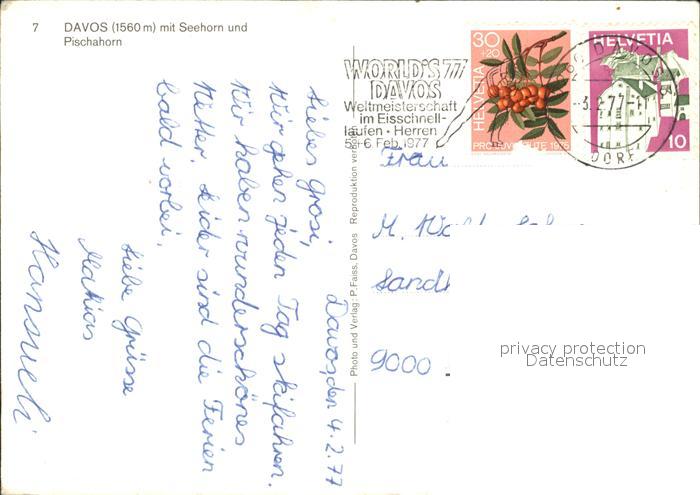 7 DAVOS (1560 m) mit Seehorn und
Pischahorn
WORLD'S 77
DAVOS
Weltmeisterschaft
im Eisschnell-
laufen · Herren
5+6 Feb. 1977
30
+20
HELVETIA
PRO JUVENTUTE 1975
HELVETIA
10
DAVOS
-3.2.77-
DORF
Davos den 4.2.77
Liebes Grosi,
Wir gehen jeden Tag skifahren.
Wir haben wunderschönes
Wetter. Leider sind die Ferien
bald vorbei.
Liebe Grüsse
Mathias
Hansueli
Photo und Verlag: P. Faiss, Davos Reproduktion verboten
Frau
M.
Sandh
9000
privacy protection
Datenschutz